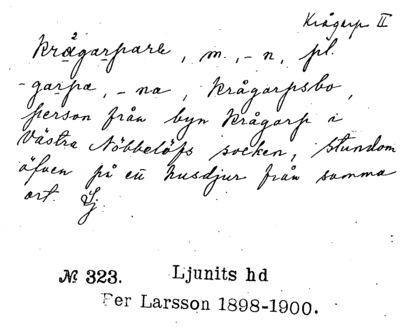 Krågarp II
Krågarpare, m., -n, pl.
-garpa, -na, Krågarpsbo,
person från byn Krågarp i
Västra Nöbbelöfs socken, stundom
äfven på ett husdjur från samma
ort. Lj.
№ 323. Ljunits hd
Per Larsson 1898-1900.